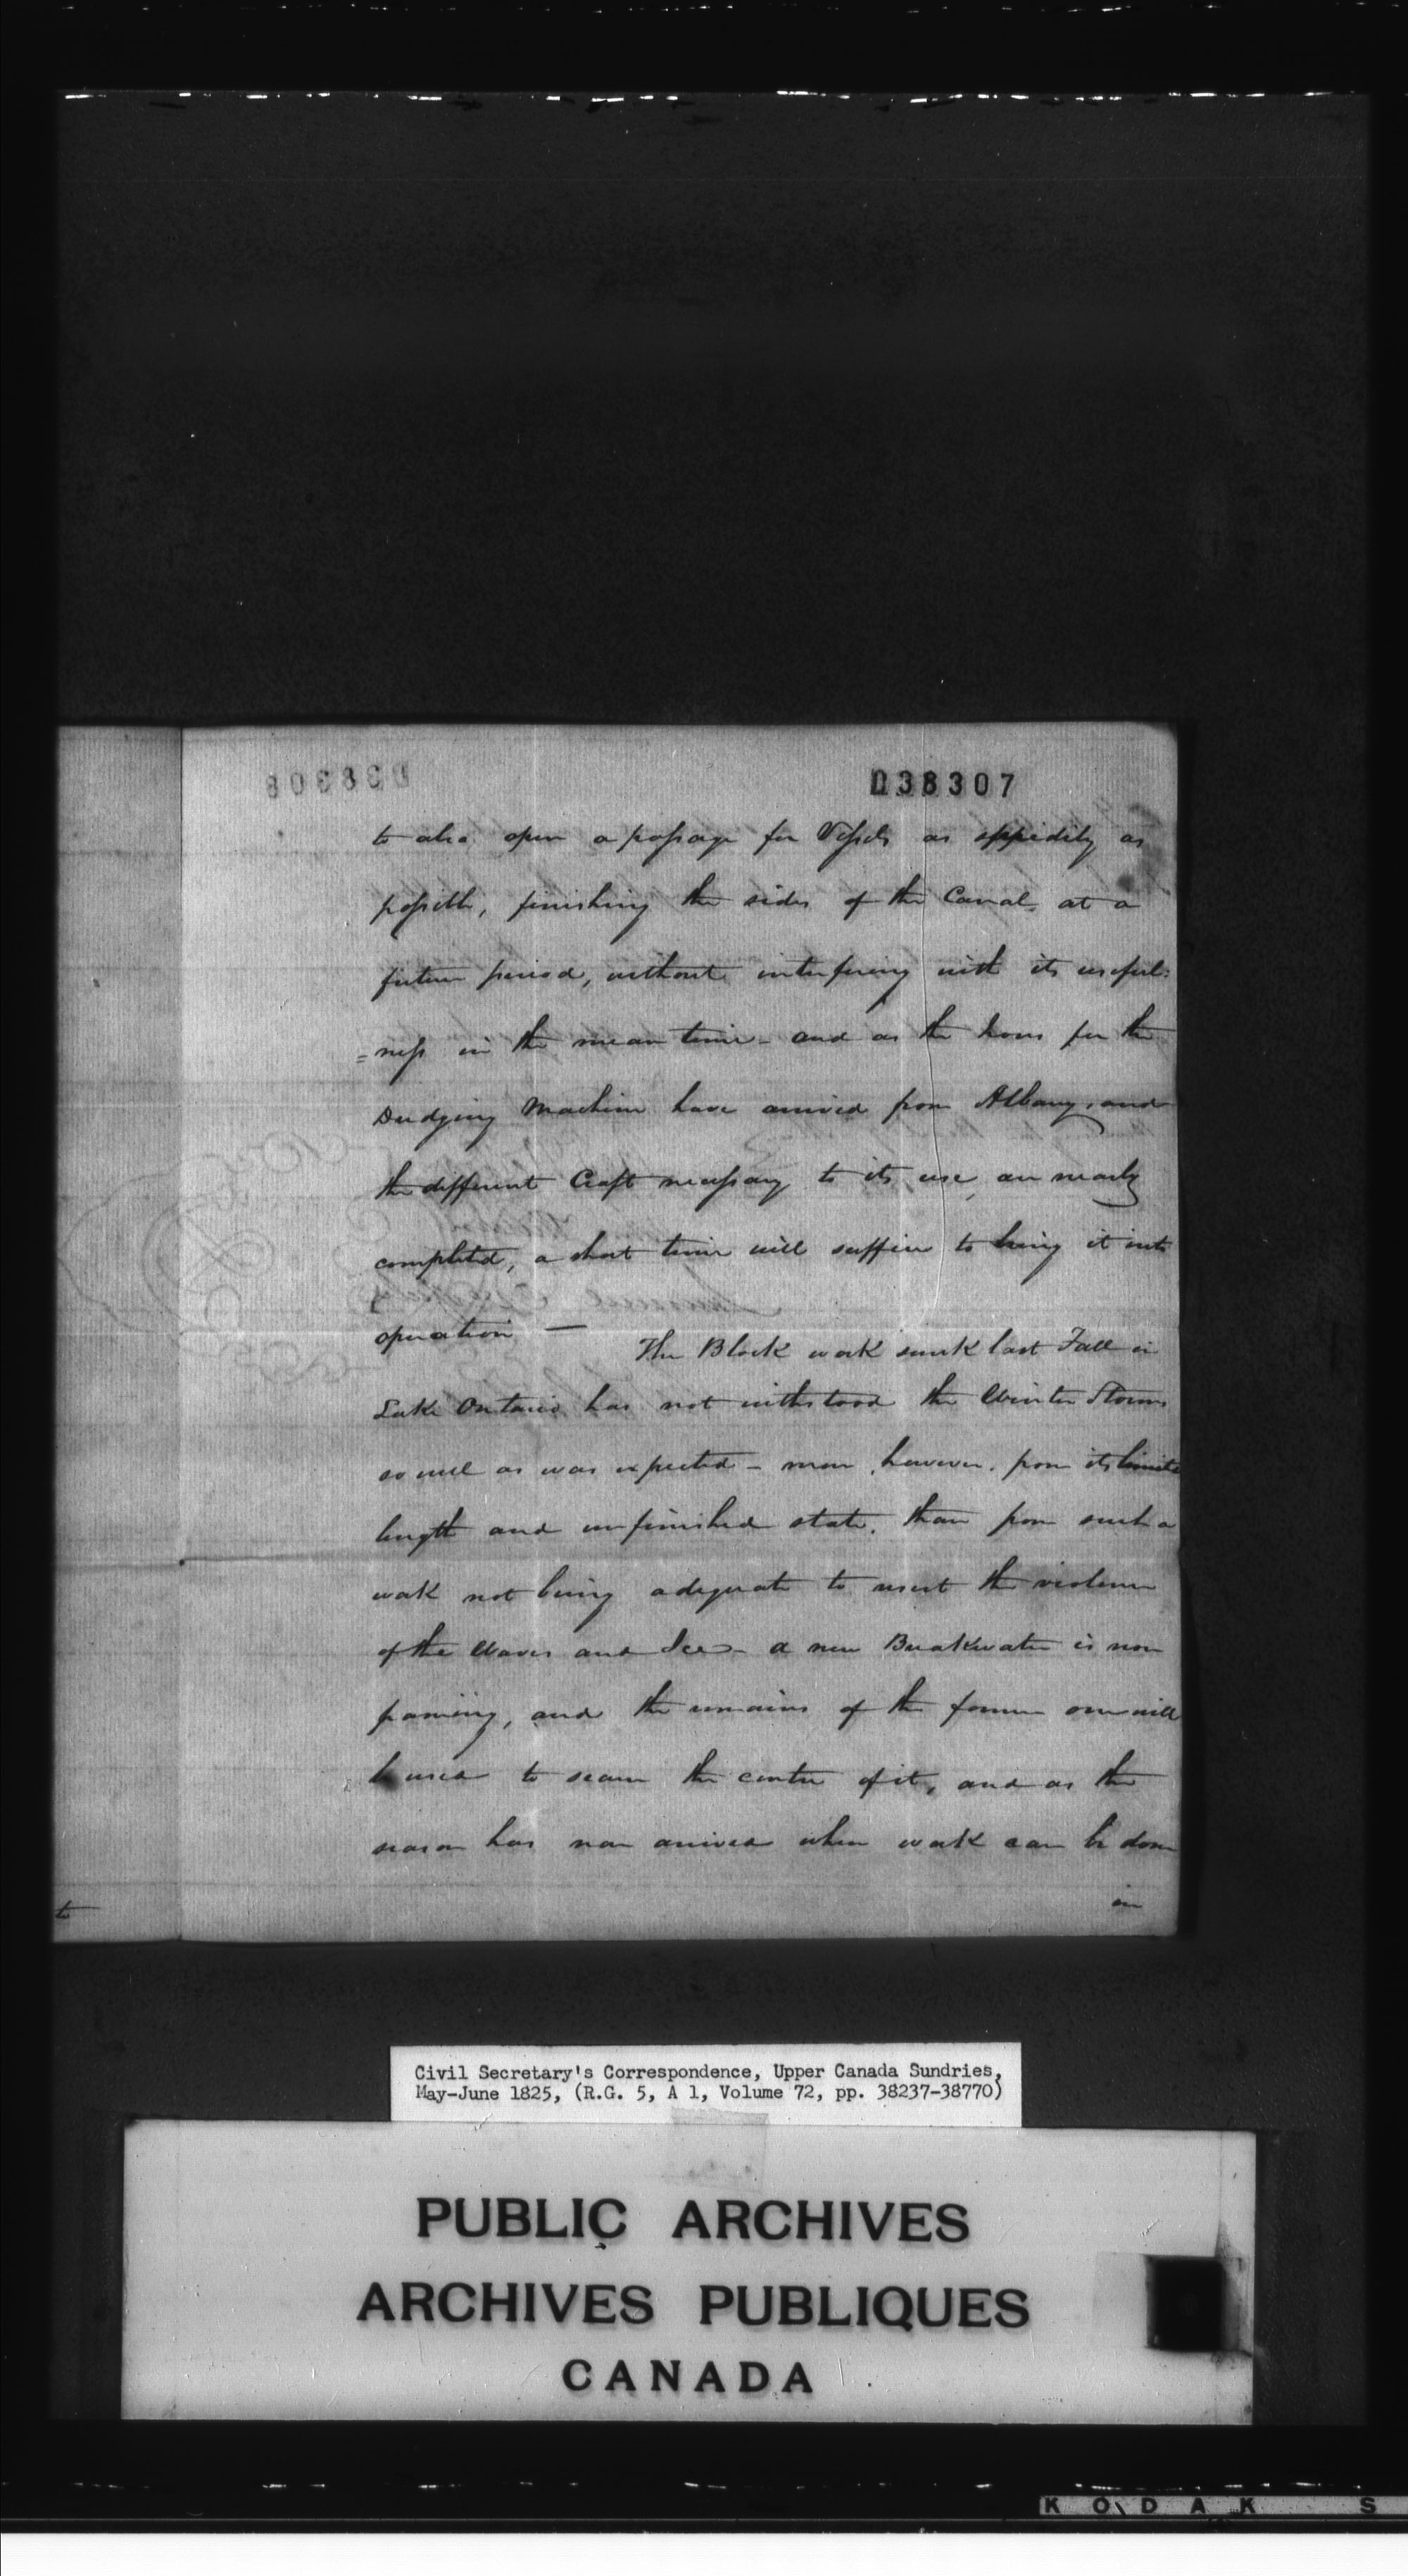 D38307
to also open a passage for Vessels as speedily as
possible, finishing the sides of the Canal, at a
future period, without interfering with its useful:
=ness in the mean time - and as the Irons for the
Dredging Machine have arrived from Albany, and
the different Craft necessary to its use, are nearly
completed, a short time will suffice to bring it into
operation —
The Block work sunk last Fall in
Lake Ontario has not withstood the Winter Storms
so well as was expected - more, however, from its limited
length and unfinished state, than from such a
work not being adequate to resist the violence
of the Waves and Ice - a new Breakwater is now
framing, and the remains of the former one will
be used to secure the centre of it, and as the
season has now arrived when work can be done
in
to
Civil Secretary's Correspondence, Upper Canada Sundries,
May-June 1825, (R.G. 5, A 1, Volume 72, pp. 38237-38770)
PUBLIC ARCHIVES
ARCHIVES PUBLIQUES
CANADA
KODAK S